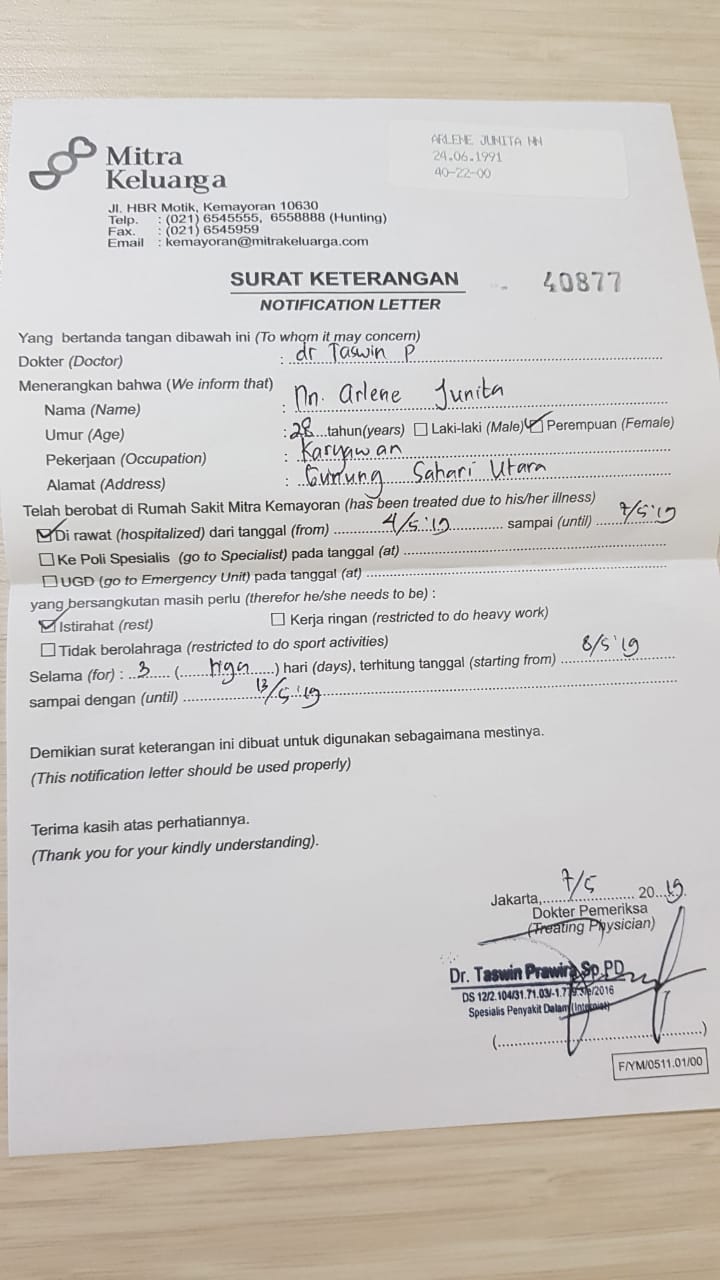 Mitra
Keluarga
ARLENE JUNITA NN
24.06.1991
40-22-00
Jl. HBR Motik, Kemayoran 10630
Telp. : (021) 6545555, 6558888 (Hunting)
Fax. : (021) 6545959
Email : kemayoran@mitrakeluarga.com
SURAT KETERANGAN
40877
NOTIFICATION LETTER
Yang bertanda tangan dibawah ini (To whom it may concern)
Dokter (Doctor) : dr Taswin P
Menerangkan bahwa (We inform that)
Nama (Name) : Nn. Arlene Junita
Umur (Age) : 28 tahun(years) Laki-laki (Male) Perempuan (Female)
Pekerjaan (Occupation) : Karyawan
Alamat (Address) : Gunung Sahari Utara
Telah berobat di Rumah Sakit Mitra Kemayoran (has been treated due to his/her illness)
Di rawat (hospitalized) dari tanggal (from) 4/5 '19 sampai (until) 7/5 '19
Ke Poli Spesialis (go to Specialist) pada tanggal (at)
UGD (go to Emergency Unit) pada tanggal (at)
yang bersangkutan masih perlu (therefor he/she needs to be) :
Istirahat (rest) Kerja ringan (restricted to do heavy work)
Tidak berolahraga (restricted to do sport activities)
Selama (for) : 3 (tiga) hari (days), terhitung tanggal (starting from) 8/5 '19
sampai dengan (until) 13/5 '19
Demikian surat keterangan ini dibuat untuk digunakan sebagaimana mestinya.
(This notification letter should be used properly)
Terima kasih atas perhatiannya.
(Thank you for your kindly understanding).
Jakarta, 7/5 2019
Dokter Pemeriksa
(Treating Physician)
Dr. Taswin Prawira Sp.PD
DS 12/2.104/31.71.03/-1.779.3/e/2016
Spesialis Penyakit Dalam (Internist)
F/YM/0511.01/00